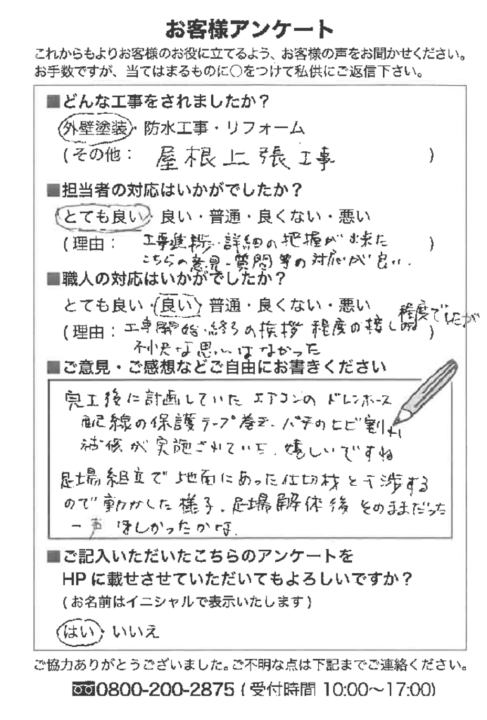 お客様アンケート
これからもよりお客様のお役に立てるよう、お客様の声をお聞かせください。
お手数ですが、当てはまるものに○をつけて私供にご返信下さい。
■どんな工事をされましたか？
外壁塗装・防水工事・リフォーム
(その他： 屋根上張工事 )
■担当者の対応はいかがでしたか？
とても良い・良い・普通・良くない・悪い
(理由： 工事進捗・詳細の把握が出来 )
こちらの意見・質問等の対応が良い.
■職人の対応はいかがでしたか？
とても良い・良い・普通・良くない・悪い
(理由：工事開始・終りの挨拶 程度の接し 程度でしたが )
不快な思いはなかった
■ご意見・ご感想などご自由にお書きください
完工後に計画していた エアコンの ドレンホース
配線の保護テープ巻き、パテのヒビ割れ
補修が実施されていた、嬉しいですね
足場組立で地面にあった仕切材と干渉する
ので動かした様子、足場解体後そのままだった
一声 ほしかったかな.
■ご記入いただいたこちらのアンケートを
HPに載せさせていただいてもよろしいですか？
(お名前はイニシャルで表示いたします)
はい・いいえ
ご協力ありがとうございました。ご不明な点は下記までご連絡ください。
0800-200-2875 ( 受付時間 10:00～17:00)